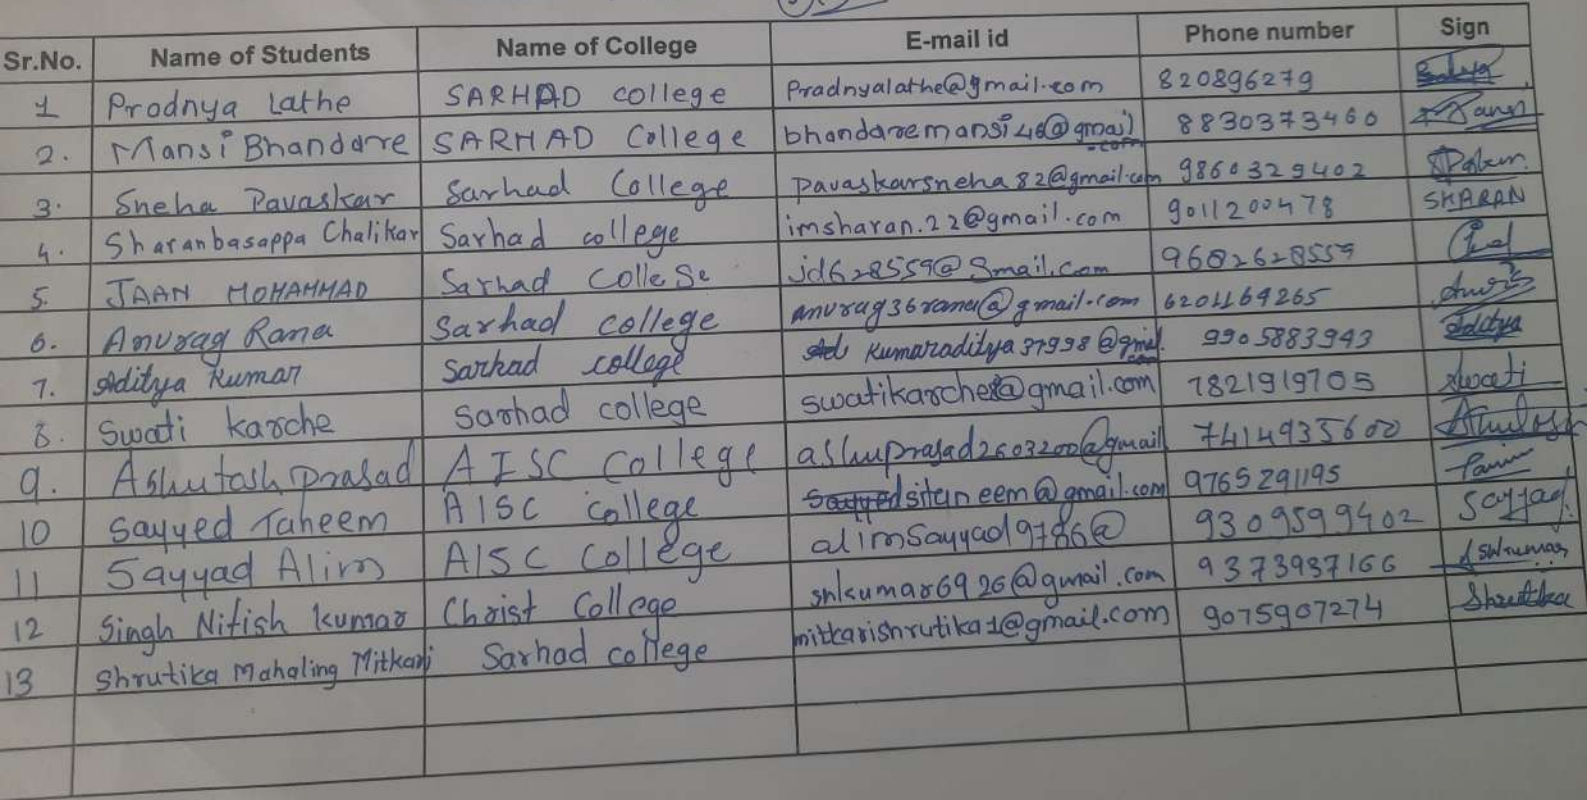 Sr.No. Name of Students Name of College E-mail id Phone number Sign
1 Prodnya Lathe SARHAD college Pradnyalathe@gmail.com 820896279
2. Mansi Bhandare SARHAD College bhandaremansi46@gmail.com 8830373460
3. Sneha Pavaskar Sarhad College pavaskarsneha82@gmail.com 9860329402
4. Sharanbasappa Chalikar Sarhad college imsharan.22@gmail.com 9011200478 SHARAN
5. JAAN MOHAMMAD Sarhad College jd628559@gmail.com 9682628559
6. Anurag Rana Sarhad college anurag36rana@gmail.com 6201169265
7. Aditya Kumar Sarhad college Kumaraditya37998@gmail.com 9905883943 Aditya
8. Swati Karche Sarhad college swatikarche@gmail.com 7821919705 Swati
9. Ashutosh prasad AISC College ashuprasad26032000@gmail 7414935600
10 Sayyed Taheem AISC college siteineem@gmail.com 9765291195
11 Sayyad Alim AISC College alimsayyad9786@ 9309599402 Sayyad
12 Singh Nitish kumar Christ College snkumar6926@gmail.com 9373937166
13 Shrutika Mahaling Mitkari Sarhad college mitkarishrutika1@gmail.com 9075907274 Shrutika